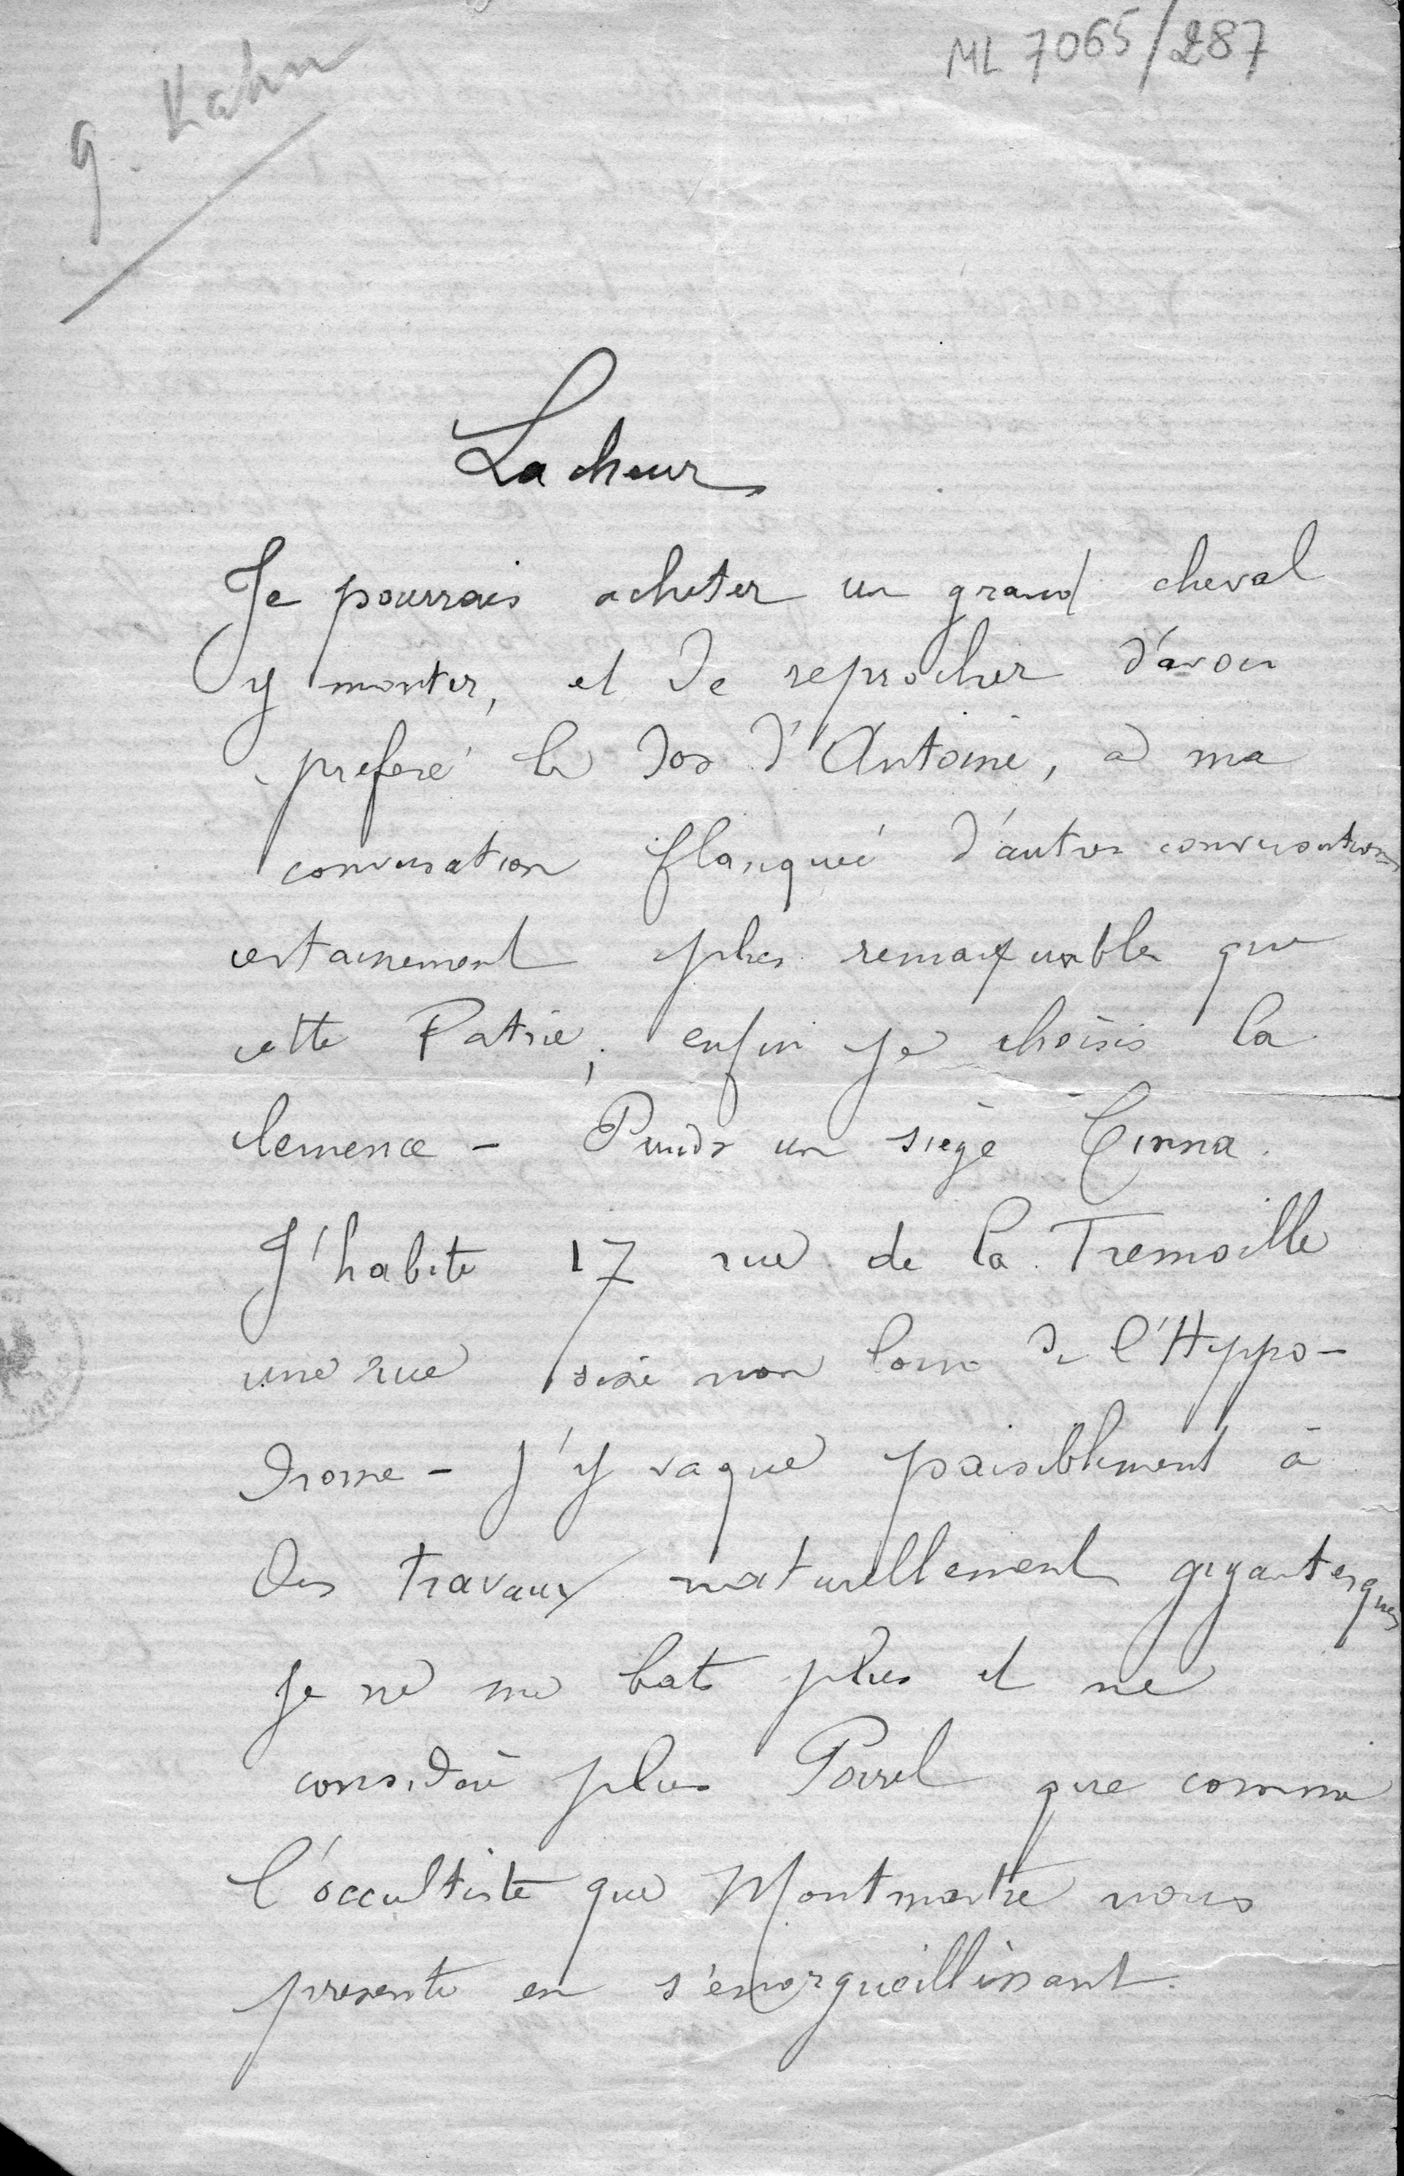 ML 7065/287
G. Kahn
Lacheur
Je pourrais acheter un grand cheval
y monter, et te reprocher d'avoir
preferé le dos d'Antoine, à ma
conversation flanqueé d'autres conversations
certainement plus remarquables que
cette Patrie; enfin je choisis la
clemence – Prends un siège Cinna.
J'habite 17 rue de la Tremoille
une rue sise non loin de l'Hyppo-
drome – j'y vaque paisiblement à
des travaux naturellement gigantesques
je ne me bats plus et ne
considère plus Porel que comme
l'occultiste que Montmartre nous
presente en s'enorgueillissant.